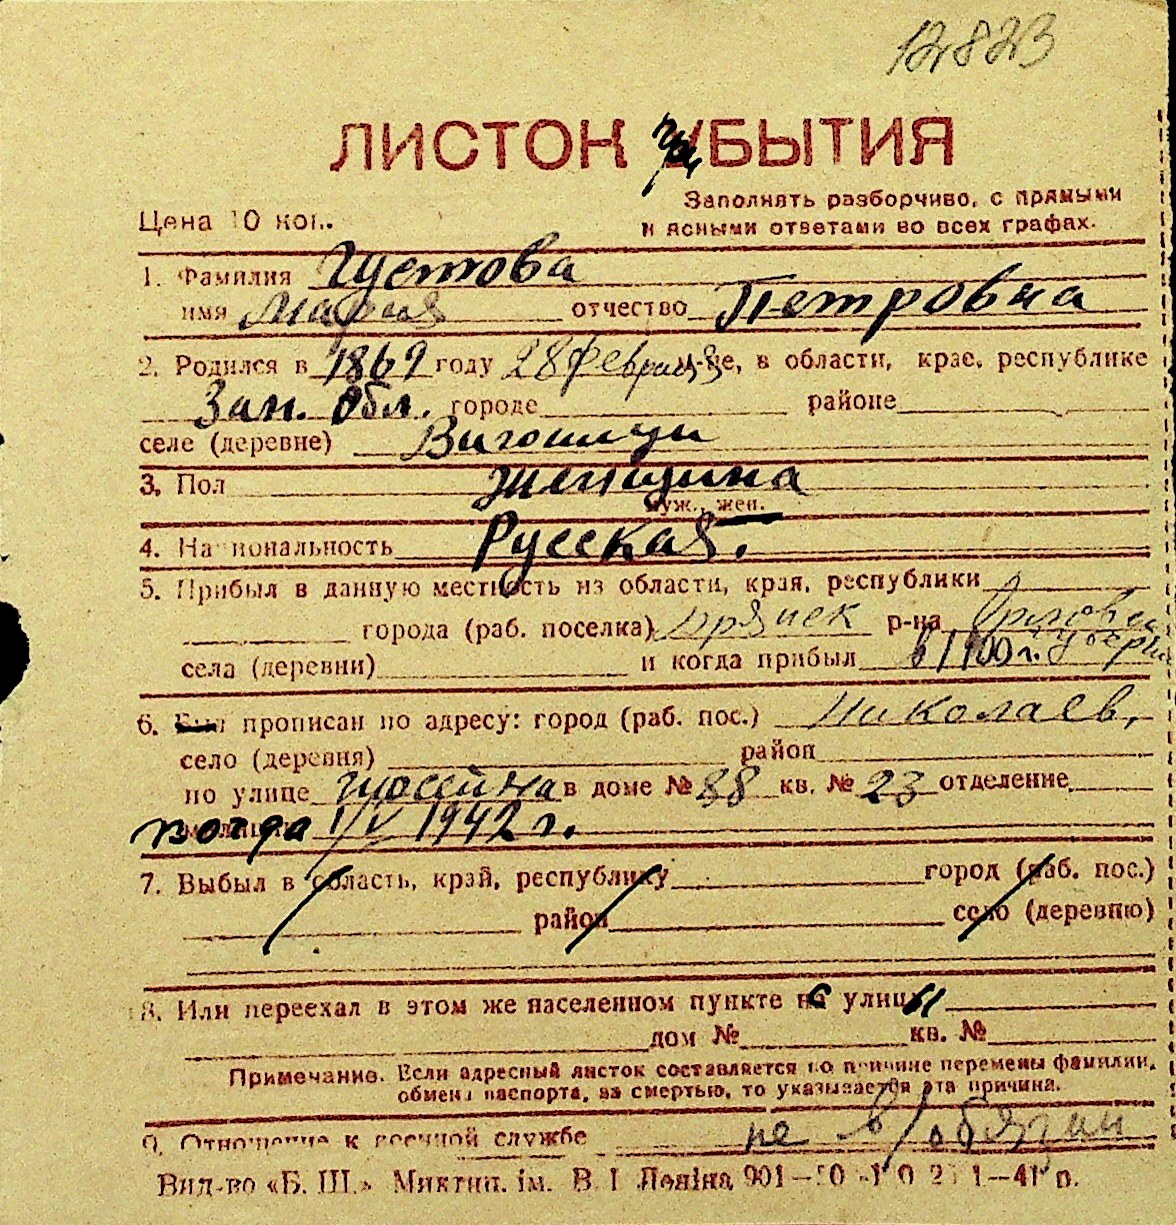 12823
ЛИСТОК прИБЫТИЯ
Заполнять разборчиво, с прямыми
Цена 10 коп. и ясными ответами во всех графах.
1. Фамилия Густова
имя Мария отчество Петровна
2. Родился в 1869 году 28 февраля м-це, в области, крае, республике
Зап. Обл. городе районе
селе (деревне)
3. Пол Женщина
муж., жен.
4. Национальность Русская.
5. Прибыл в данную местность из области, края, республики
города (раб. поселка) Брянск р-на Орловск
села (деревни) и когда прибыл в 1900 г. губерн
6. прописан по адресу: город (раб. пос.) Николаев,
село (деревня) район
по улице Шоссейна в доме № 38 кв. № 23 отделение
когда 1/V 1942 г.
7. Выбыл в область, край, республику город (раб. пос.)
район село (деревню)
8. Или переехал в этом же населенном пункте с улицы
дом № кв. №
Примечание. Если адресный листок составляется по причине перемены фамилии,
обмена паспорта, за смертью, то указывается эта причина.
9. Отношение к военной службе не в/обязан
Вид-во «Б. Ш.» Миктип. ім. В. І. Леніна 901